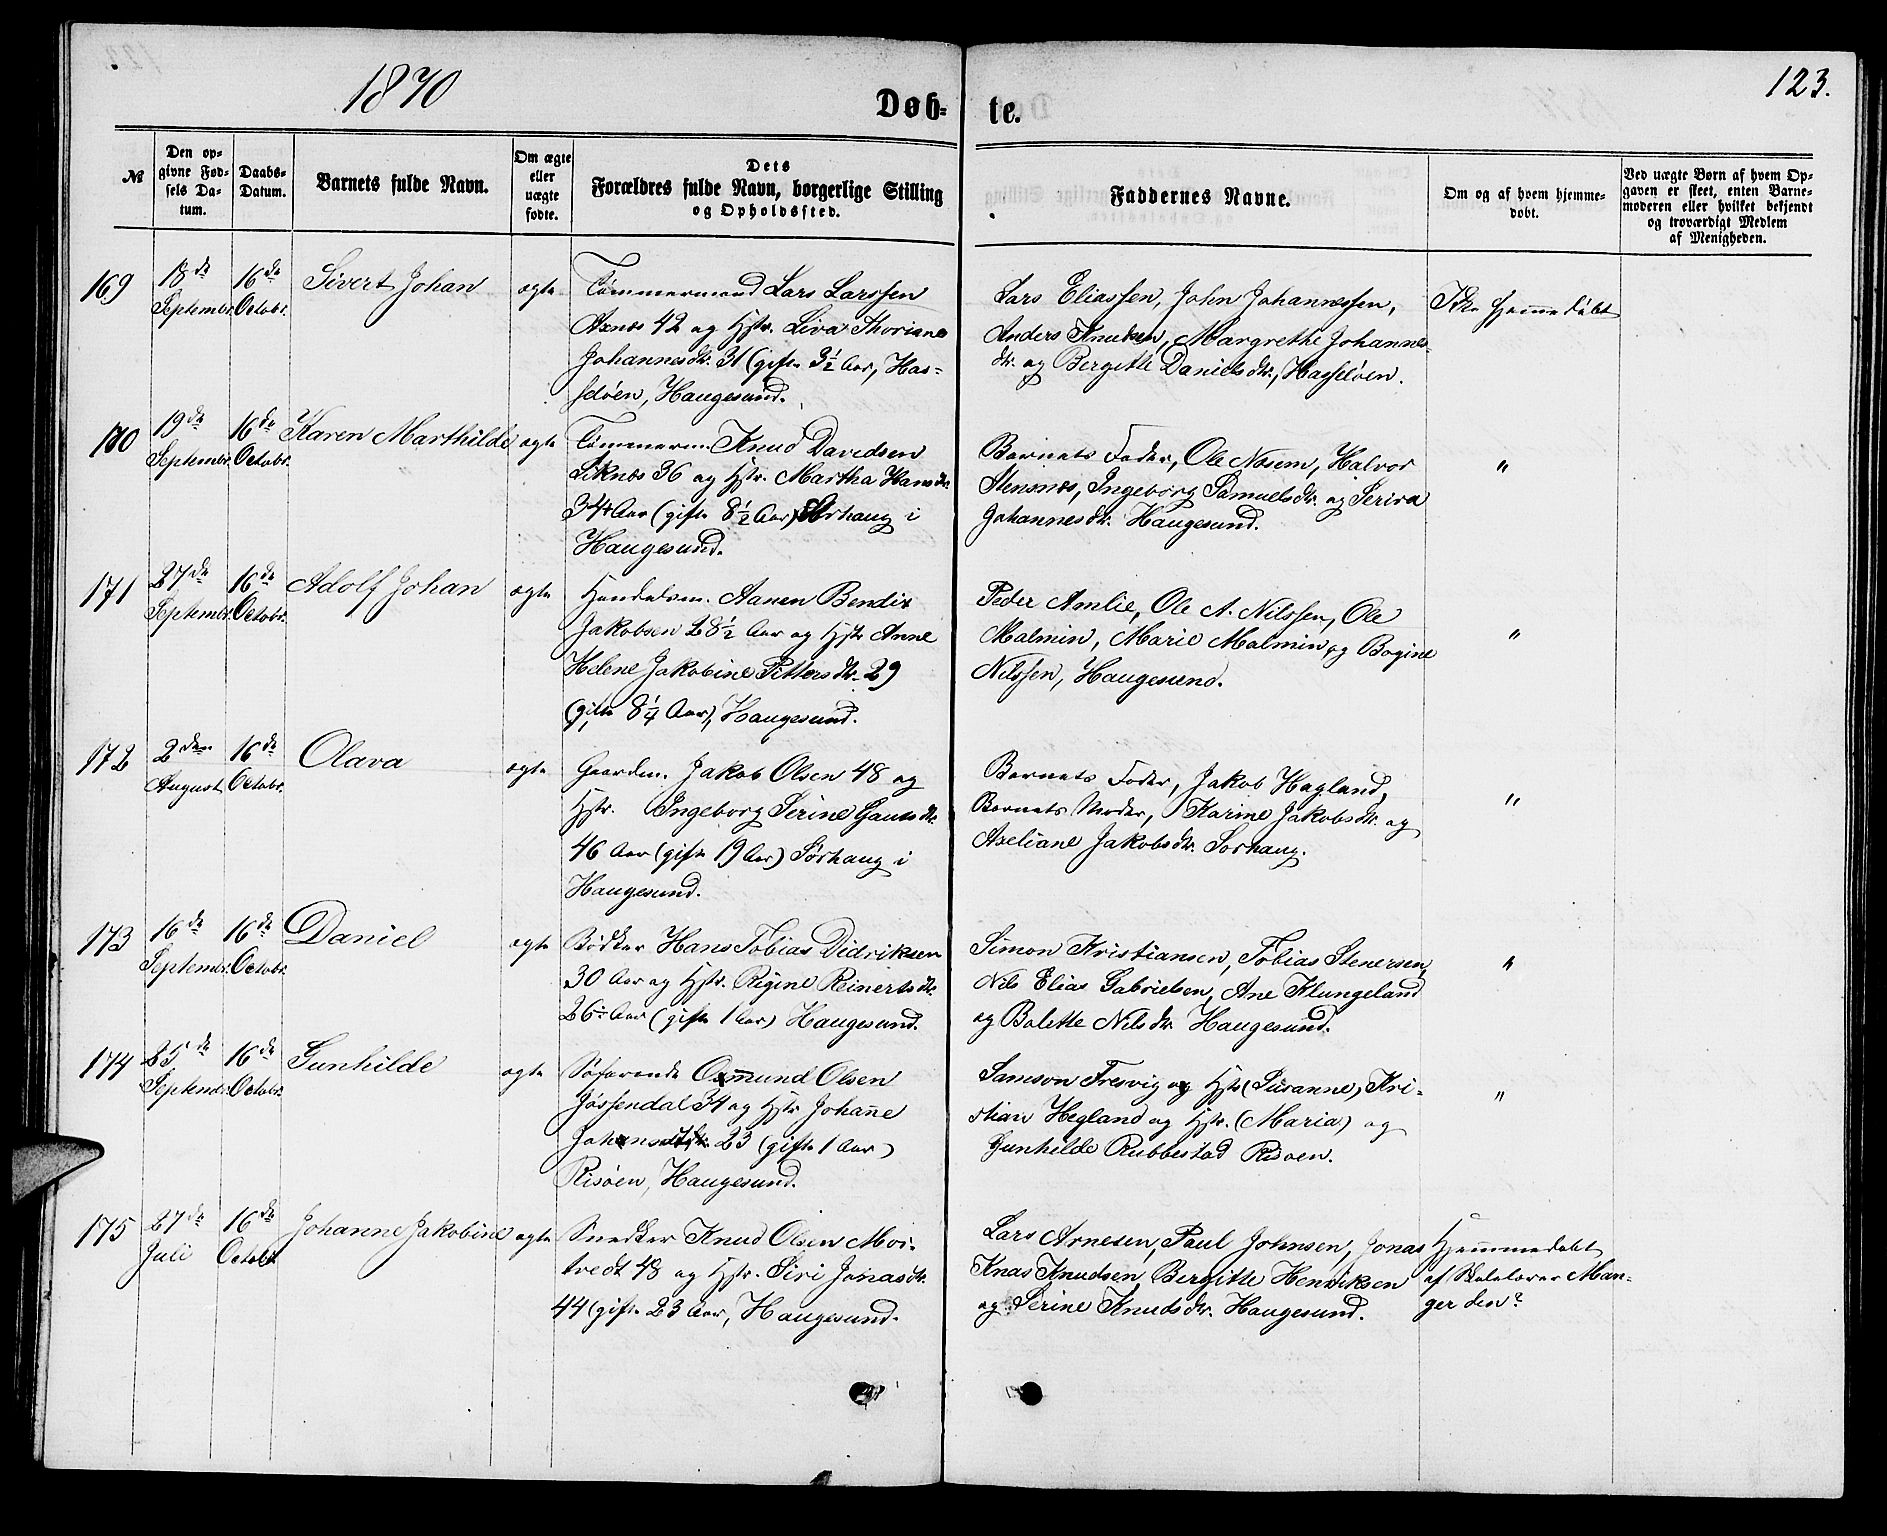 1870
Døb-
te.
123.
№
Den op-
givne Fød-
sels Da-
tum.
Daabs-
Datum.
Barnets fulde Navn.
Om ægte
eller
uægte
fødte.
Dets
Forældres fulde Navn, borgerlige Stilling
og Opholdssted.
Faddernes Navne.
Om og af hvem hjemme-
døbt.
Ved uægte Børn af hvem Op-
gaven er skeet, enten Barne-
moderen eller hvilket bekjendt
og troværdigt Medlem
af Menigheden.
169
18de
Septembr.
16de
Octobr.
Sivert Johan
ægte
Tømmermand Lars Larssen
42 og Hstr. Liva Thoriane
Johannesdtr. 31 (gift 3½ Aar, Has-
seløen, Haugesund.
Lars Eliassen, John Johannessen,
Anders Knudsen, Margrethe Johannes-
dtr. og Bergitte Danielsdtr., Hasseløen.
Ikke hjemmedøbt
170
19de
Septembr.
16de
Octobr.
Karen Marthilde
ægte
Tømmerm. Knud Davidsen
Liknes 36 og Hstr. Martha Hansdtr.
34 Aar (gift 8½ Aar) Sørhaug i
Haugesund.
Barnets Fader, Ole Nesem, Halvor
Stensnes, Ingeborg Samuelsdtr. og Serina
Johannesdtr. Haugesund.
"
171
27de
Septembr.
16de
Octobr.
Adolf Johan
ægte
Handelsm. Aanen Bendix
Jakobsen 28½ Aar og Hstr. Anne
Helene Jakobine Pettersdtr. 29
(gift 8¼ Aar), Haugesund.
Peder Amlie, Ole A. Nilssen, Ole
Malmin, Marie Malmin og Bogine
Nilssen, Haugesund.
"
172
2den
August
16de
Octobr.
Olava
ægte
Gaardm. Jakob Olsen 48 og
Hstr. Ingeborg Serine Gautsdtr.
46 Aar (gift 19 Aar) Sørhaug i
Haugesund.
Barnets Fader, Jakob Hagland,
Barnets Moder, Karine Jakobsdtr. og
Axeliane Jakobsdtr. Sørhaug.
"
173
16de
Septembr.
16de
Octobr.
Daniel
ægte
Bødker Hans Tobias Didriksen
30 Aar og Hstr. Rigine Reinertsdtr.
26 Aar (gift 1 Aar) Haugesund.
Simon Kristiansen, Tobias Stenersen,
Nils Elias Gabrielsen, Ane Klungeland
og Bolette Nilsdtr. Haugesund.
"
174
25de
Septembr.
16de
Octobr.
Gunhilde
ægte
Søfarende Osmund Olsen
Jøssendal 34 og Hstr. Johanne
23 (gift 1 Aar)
Risøen, Haugesund.
Samson Tresvig og Hstr. (Susanne), Kri-
stian Hegland og Hstr. (Maria) og
Gunhilde Rubbestad Risøen.
"
175
27de
Juli
16de
Octobr.
Johanne Jakobine
ægte
Snedker Knud Olsen Moi-
tvedt 48 og Hstr. Siri Jonasdtr.
44 (gift 23 Aar, Haugesund.
Lars Arnesen, Paul Johnsen, Jonas
Knas Knudsen, Bergitte Henriksen
og Serine Knudsdtr. Haugesund.
Hjemmedøbt
af Skolelærer Man-
ger den ?